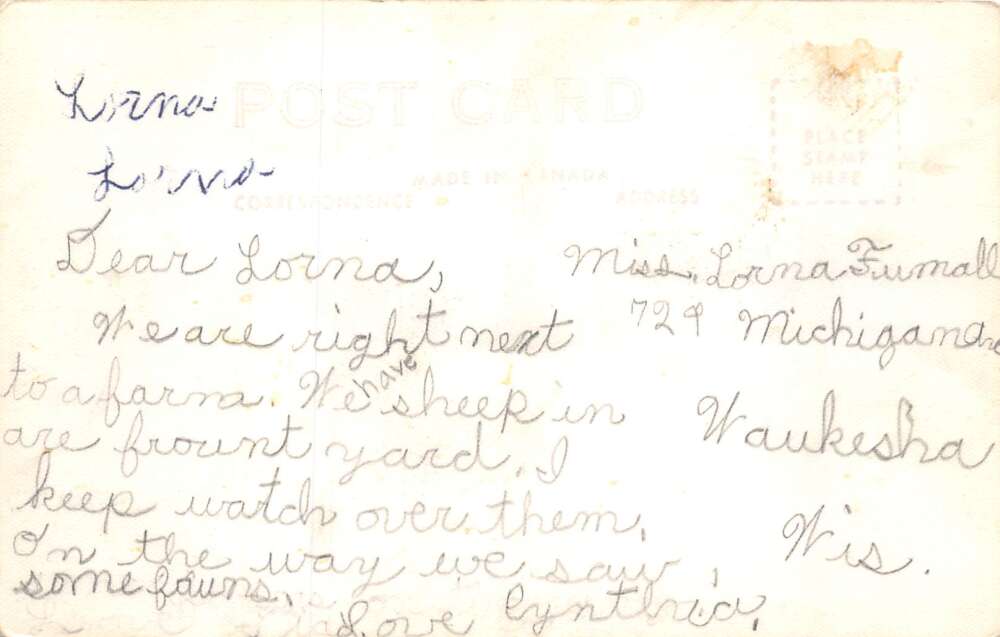 Lorna
Lorna
POST CARD
PLACE
STAMP
HERE
MADE IN CANADA
CORRESPONDENCE
ADDRESS
Dear Lorna,
We are right next
to a farm. We have sheep in
are frount yard. I
keep watch over them.
On the way we saw
some fawns.
Love Cynthia,
Miss. Lorna
729 Michigan Ave
Waukesha
Wis.